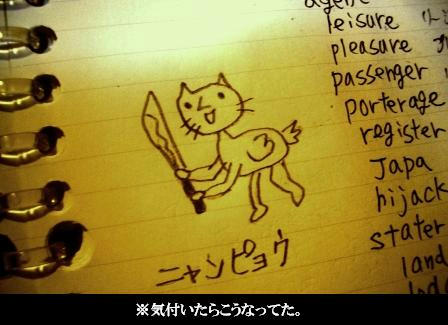 agent
leisure
pleasure
passenger
porterage
register
Japa
hijack
stater
land
3
ニャンピョウ
※気付いたらこうなってた。